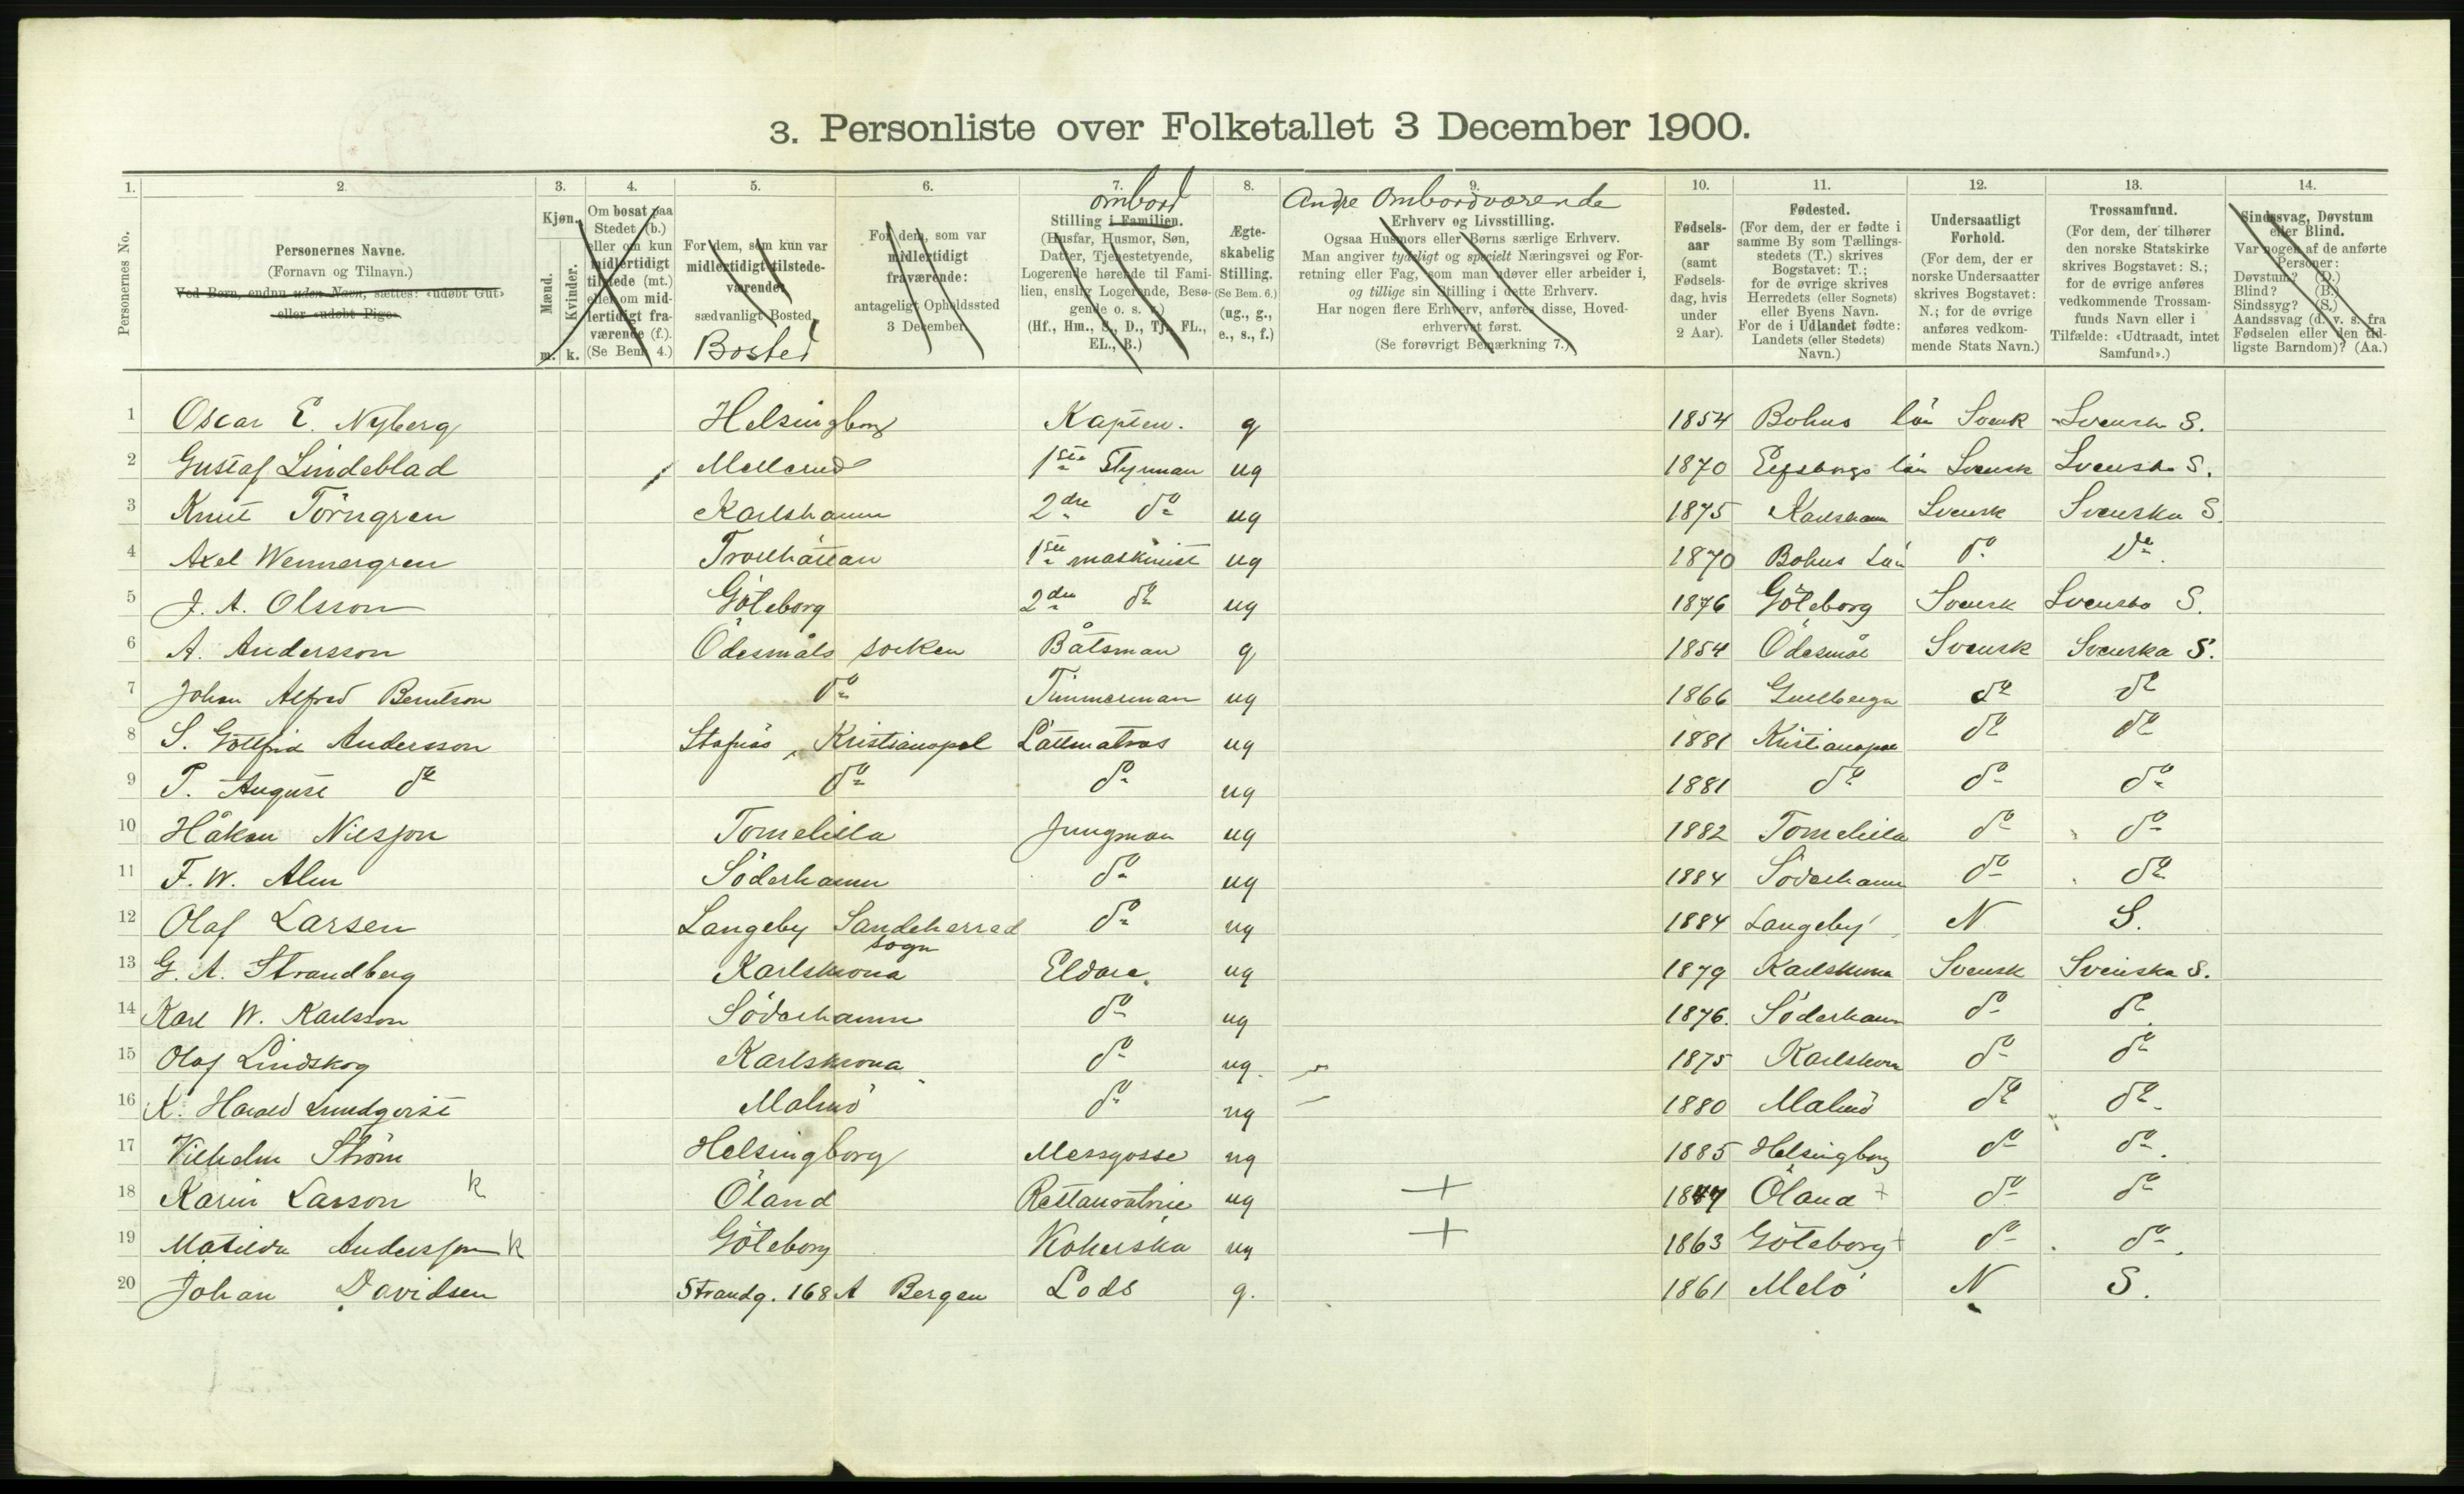 3. Personliste over Folketallet 3 December 1900.
1. 2. 3. 4. 5. 6. 7. 8. 9. 10. 11. 12. 13. 14.
Personernes No.
Personernes Navne.
(Fornavn og Tilnavn.)
Ved Børn, endnu uden Navn, sættes: «udøbt Gut»
eller «udøbt Pige».
Kjøn.
Mænd.
Kvinder.
m. k.
Om bosat paa
Stedet (b.)
eller om kun
midlertidigt
tilstede (mt.)
eller om mid-
lertidigt fra-
værende (f.).
(Se Bem. 4.)
For dem, som kun var
midlertidigt tilstede-
værende:
sædvanligt Bosted.
Bosted
For dem, som var
midlertidigt
fraværende:
antageligt Opholdssted
3 December.
ombord
Stilling i Familien.
(Husfar, Husmor, Søn,
Datter, Tjenestetyende,
Logerende hørende til Fami-
lien, enslig Logerende, Besø-
gende o. s. v.)
(Hf., Hm., S., D., Tj., FL.,
EL., B.)
Ægte-
skabelig
Stilling.
(Se Bem. 6.)
(ug., g.,
e., s., f.)
Andre Ombordværende
Erhverv og Livsstilling.
Ogsaa Husmors eller Børns særlige Erhverv.
Man angiver tydeligt og specielt Næringsvei og For-
retning eller Fag, som man udøver eller arbeider i,
og tillige sin Stilling i dette Erhverv.
Har nogen flere Erhverv, anføres disse, Hoved-
erhvervet først.
(Se forøvrigt Bemærkning 7.)
Fødsels-
aar
(samt
Fødsels-
dag, hvis
under
2 Aar).
Fødested.
(For dem, der er fødte i
samme By som Tællings-
stedets (T.) skrives
Bogstavet: T.;
for de øvrige skrives
Herredets (eller Sognets)
eller Byens Navn.
For de i Udlandet fødte:
Landets (eller Stedets)
Navn.)
Undersaatligt
Forhold.
(For dem, der er
norske Undersaatter
skrives Bogstavet:
N.; for de øvrige
anføres vedkom-
mende Stats Navn.)
Trossamfund.
(For dem, der tilhører
den norske Statskirke
skrives Bogstavet: S.;
for de øvrige anføres
vedkommende Trossam-
funds Navn eller i
Tilfælde: «Udtraadt, intet
Samfund».)
Sindssvag, Døvstum
eller Blind.
Var nogen af de anførte
Personer:
Døvstum? (D.)
Blind? (B.)
Sindssyg? (S.)
Aandssvag (d. v. s. fra
Fødselen eller den tid-
ligste Barndom)? (Aa.)
1 Oscar E. Nyberg Helsingborg Kapten. g 1854 Bohus län Svensk Svenska S.
2 Gustaf Lindeblad Mellerud 1sta Styrman ug 1870 Elfsborgs län Svensk Svenska S.
3 Knut Törngren Karlshamn 2dre do ug 1875 Karlshamn Svensk Svenska S.
4 Axel Wennergren Trollhättan 1sta maskinist ug 1870 Bohus Län do do
5 J. A. Olsson Göteborg 2dre do ug 1876 Göteborg Svensk Svenska S.
6 A. Andersson Ödesmåls socken Båtsman g 1854 Ödesmål Svensk Svenska S.
7 Johan Alfred Berntson do Timmerman ug 1866 do do
8 S. Gottfrid Andersson Kristianopel Lättmatros ug 1881 Kristianopel do do
9 P. August do do do ug 1881 do do do
10 Håkan Nilsson Tomelilla Jungman ug 1882 Tomelilla do do
11 F. W. Alm Söderhamn do ug 1884 Söderhamn do do
12 Olaf Larsen Langeby Sandeherred sogn do ug 1884 Langeby N S.
13 G. A. Strandberg Karlskrona Eldare. ug 1879 Karlskrona Svensk Svenska S.
14 Karl W. Karlsson Söderhamn do ug 1876. Söderhamn do do
15 Olaf Lindskog Karlskrona do ug 1875 Karlskrona do do
16 K. Harald Lundqvist Malmö do ug 1880 Malmö do do
17 Vilhelm Ström Helsingborg Messgosse ug 1885 Helsingborg do do.
18 Karin Larson k Öland Restauratrice ug + Öland + do do
19 Matilda Andersson k Göteborg Kokerska ug + 1863 Göteborg + do do.
20 Johan Davidsen Strandg. 168 A Bergen Lods g. 1861 Melö N S.